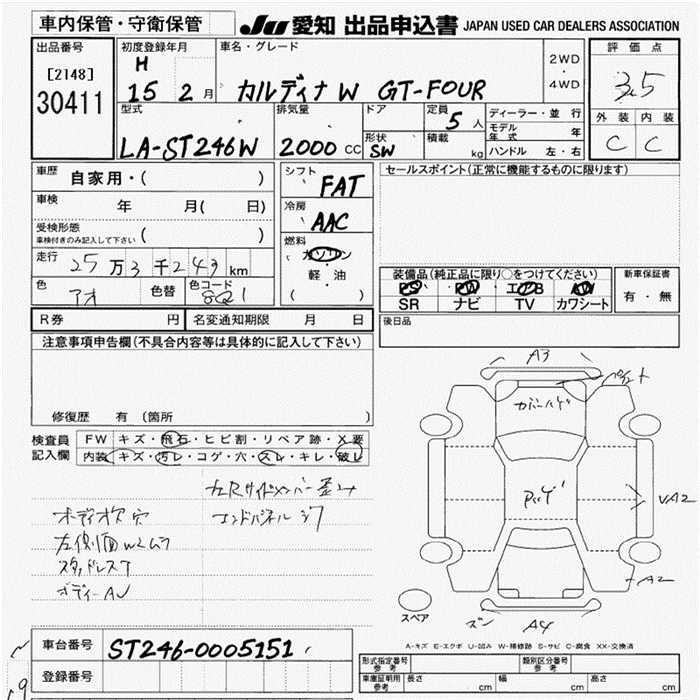 車内保管・守衛保管
JU 愛知 出品申込書 JAPAN USED CAR DEALERS ASSOCIATION
出品番号
[2148]
30411
初度登録年月
H
15 2 月
車名・グレード
カルディナ W GT-FOUR
2WD
・
4WD
評価点
3.5
外装 内装
C C
型式
LA-ST246W
排気量
2000 CC
ドア
形状
SW
定員
5 人
積載
kg
ディーラー・並行
モデル年式 年
ハンドル 左・右
車歴
自家用・( )
車検
年 月( 日)
受検形態
車検付きのみ記入して下さい ( )
走行
25万3千243 km
色
アオ
色替
色コード
8Q1
シフト
FAT
冷房
AAC
燃料
ガソリン
・
軽・油
( )
セールスポイント(正常に機能するものに限ります)
装備品(純正品に限り○をつけてください)
PS PW エアB AW
SR ナビ TV カワシート
新車保証書
有・無
R券 円
名変通知期限 月 日
後日品
注意事項申告欄(不具合内容等は具体的に記入して下さい)
修復歴 有 (箇所 )
検査員
記入欄
FW キズ・飛石・ヒビ割・リペア跡・X要
内装 キズ・汚レ・コゲ・穴・スレ・キレ・破レ
エンドパネル
左側面W2ムラ
スタッドレスT
A3
VA2
A2
A4
スペア
A-キズ E-エクボ U-凹み W-補修跡 S-サビ C-腐食 XX-交換済
車台番号
ST246-0005151
登録番号
形式指定番号
参考
類別区分番号
参考
車庫証明用
参考
長さ cm
幅 cm
高さ cm